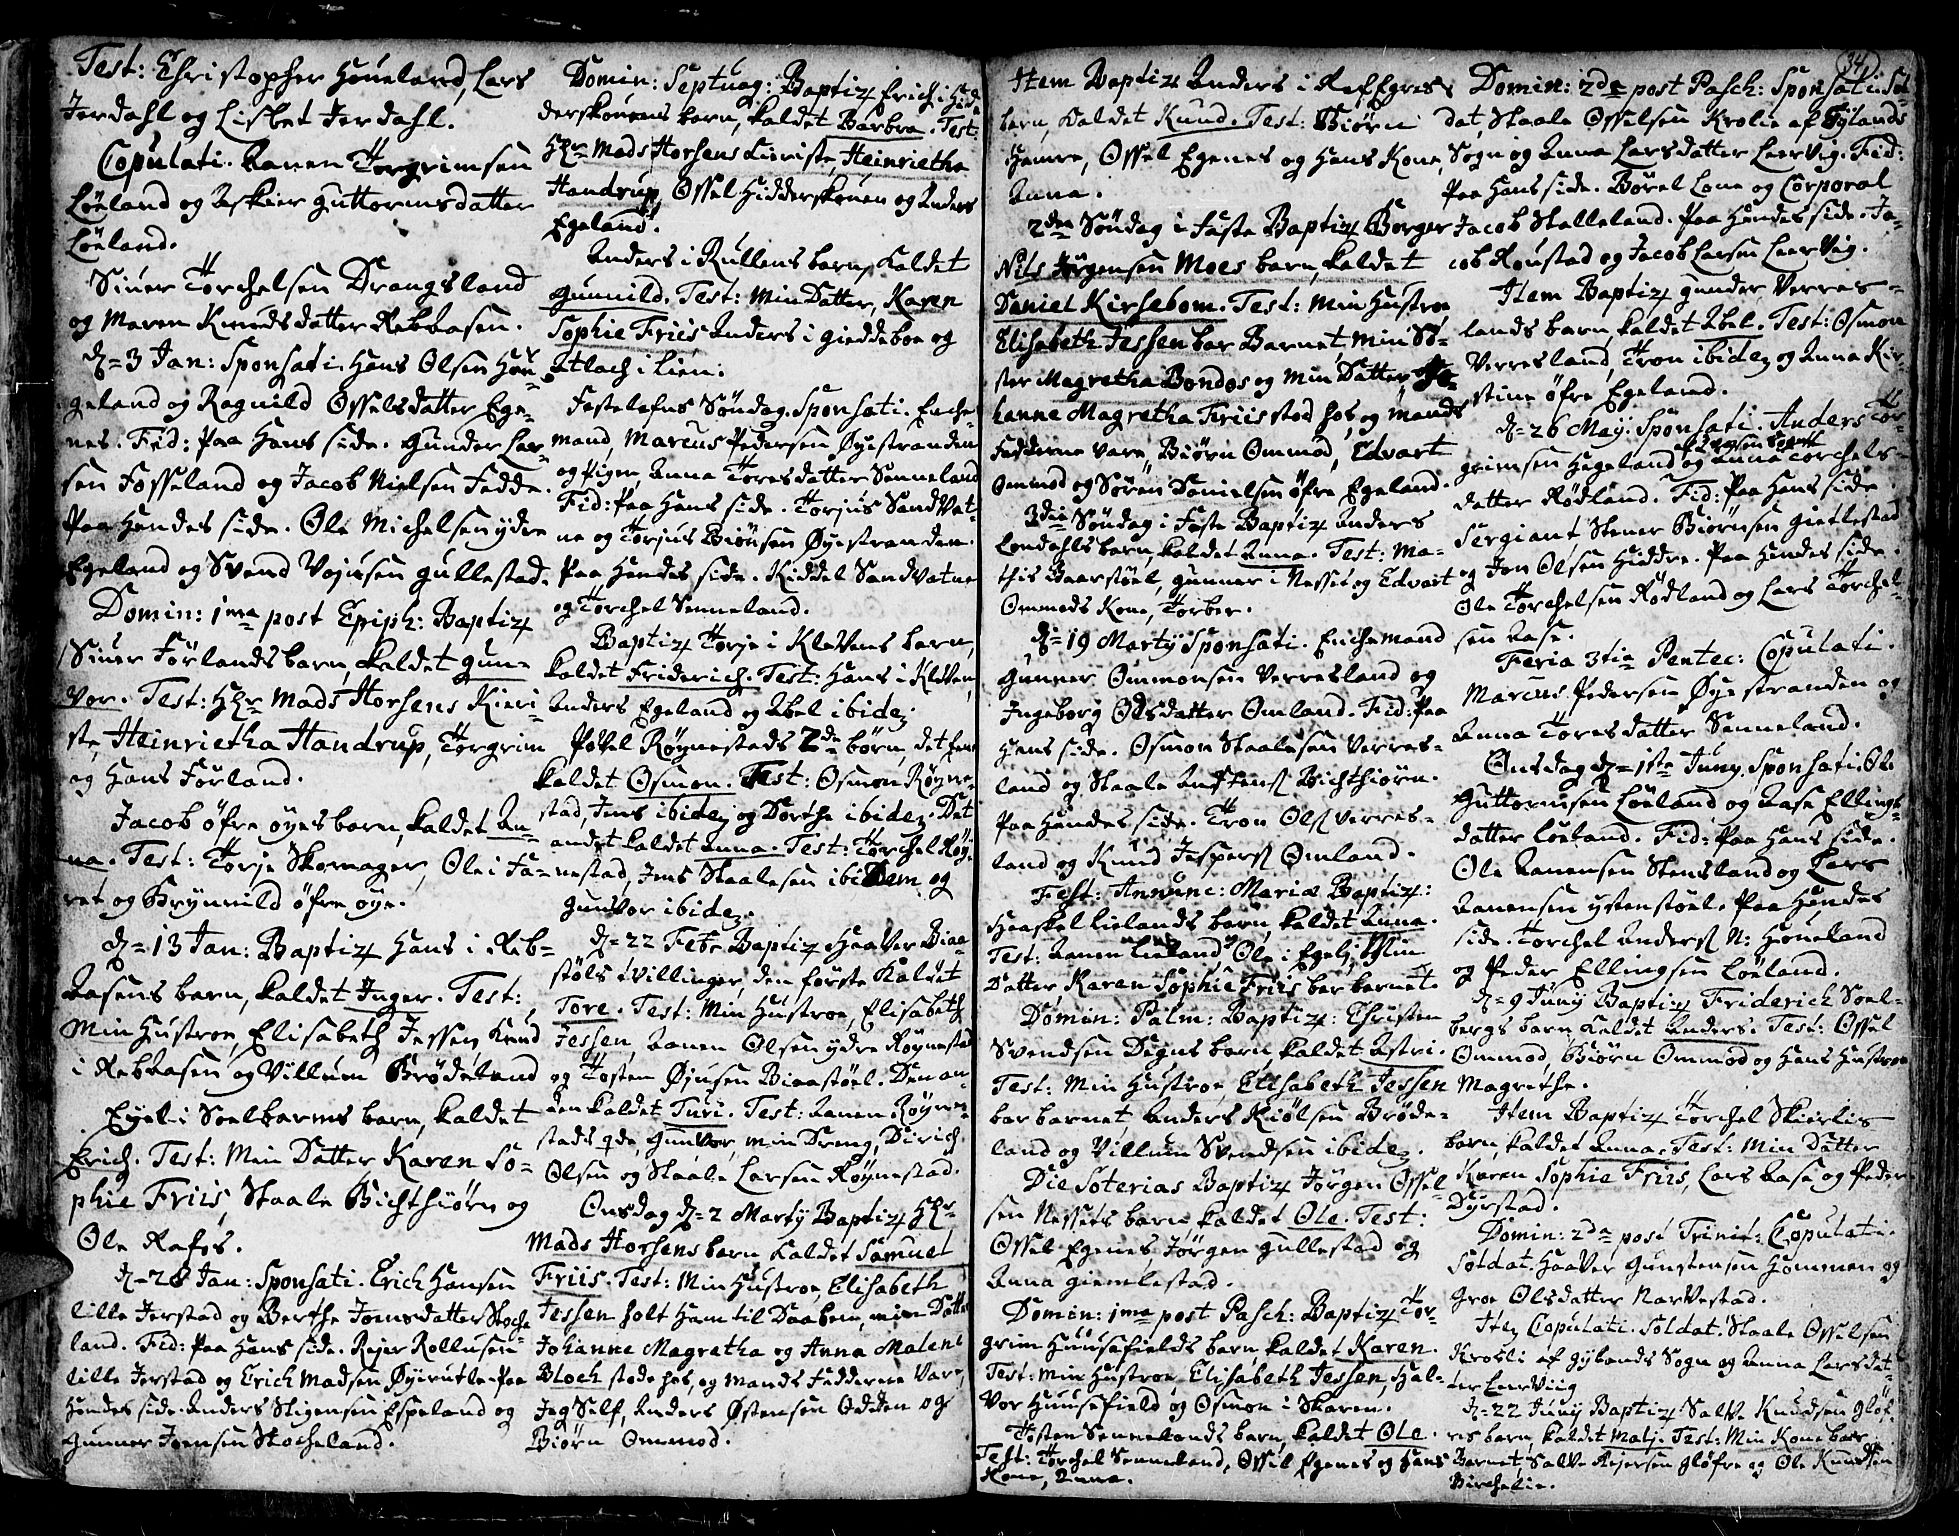 Test: Christopher Houeland, Lars
Jerdahl og Lisbet Jerdahl.
Copulati. Aanen Torgrimsen
Löeland og Askier Guttormsdatter
Löeland.
Siuer Torchelsen Drangsland
og Maren Knudsdatter Rebaasen.
d. 3 Jan: Sponsati. Hans Olsen
geland og Ragnild Osselsdatter Ege-
nes. Fid: Paa Hans side. Gunder Lar-
sen Fosseland og Jacob Nielsen Fedde.
Paa Hendes side. Ole Michelsen ydre
Egeland og Svend Vojusen Gullestad.
Domin: 1ma post Epiph: Baptiz
Siuer Förlands barn, kaldet Gun-
vor. Test: Hr Mads Horsens Kieri-
ste, Heinrietha Handrup, Torgrim
og Hans Förland.
Jacob öfre öyes barn, kaldet An-
na. Test: Torje Skomager, Ole i Ja-
ret og Brynnild öfre öye.
d. 13 Jan: Baptiz Hans i Reb-
Aasens barn, kaldet Inger. Test:
Min Hustroe, Elisabeth Jessen, Knud
i Rebaasen og Villum Brödeland
i Soelbarms barn, kaldet
Erich. Test: Min Datter Karen So-
phie Friis, Staale Bichthiörn og
Ole Rafos.
d. 28 Jan: Sponsati. Erich Hansen
lille Jerstad og Berthe Jonsdatter Stoche
land. Fid: Paa Hans side. Rejer Rollusen
lille Jerstad og Erich Madsen Öyerutle. Paa
Hendes side. Anders Stigensen Espeland og
Gunner Joensen Stocheland.
Domin: Septuag: Baptiz Erich i Hid-
derskouens barn, kaldet Barbra. Test:
Hr Mads Horsens Kieriste, Heinrietha
Handrup, Ossel Hidderskouen og Anders
Egeland.
Anders i Rullens barn, kaldet
Gunnild. Test: Min Datter, Karen
Sophie Friis Anders i Gieddeboe og
Atlach i Lien.
Fastelafns Söndag. Sponsati. Enche-
mand, Marcus Pedersen Öyestranden
og Pigen, Anna Toresdatter Senneland
Fid: Paa Hans side. Torjus Sandvat-
ne og Torjus Biönsen Öyestranden.
Paa Hendes side. Kiddel Sandvatne
og Torchel Senneland.
Baptiz Torje i Klevens barn,
kaldet Friderich. Test: Hans i Kleven,
Anders Egeland og Abel ibidez
Povel Röynestads 2de börn, det förste
kaldet Osmon. Test: Osmon Röyne-
stad, Jens ibidez og Dorthe ibidez. Det
andet kaldet Anna. Test: Torchel Röy-
nestad, Jens Staalesen ibidem og
Gunvor ibidez.
d. 22 Febr Baptiz Haaver Biaa-
stöls tvillinger, den förste kaldet
Tore. Test: Min Hustroe, Elisabeth
Jessen, Aanen Olsen ydre Röynestad
og Tosten Öjusen Biaastöel. Den an-
den kaldet Turi. Test: Aanen Röyne-
stads qde, Gunvor, min Dreng, Dirich
Olsen og Staale Larsen Röynestad.
Onsdag d. 2 Martij Baptiz Hr
Mads Horsens barn kaldet Samuel
Friis. Test: Min Hustroe, Elisabeth
Jessen holt Ham til Daaben, min Datter
Johanne Magretha og Anna Malene
Bloch stode hos, og Mands Fadderne Vare,
Jeg Self, Anders Östensen Odden og
Biörn Ommod.
34
Item Baptiz Anders i
barn, kaldet Knud. Test: Biörn
Hamre, Ossel Egenes og Hans Kone,
Anna.
2den Söndag i Faste Baptiz Borger
Nils Jörgensen Moes barn, kaldet
Daniel Kirsebom. Test: Min Hustroe
Elisabeth Jessen bar Barnet, min Sö-
ster Magretha Bondos og min Datter, Jo-
hanne Magretha Friis stod hos, og Mands
Fadderne vare, Biörn Ommod, Edvart
Ommod og Sören Danielsen öfre Egeland.
3die Söndag i Faste Baptiz Anders
Londahls barn, kaldet Anna. Test: Ma-
this Baarstöel, Gunner i Nesset og Edvart
Ommods Kone, Torber.
d. 19 Martij Sponsati. Enchemand
Gunner Ommonsen Verresland og
Ingeborg Olsdatter Omland. Fid: Paa
Hans side. Osmon Staalesen Verres-
land og Staale Bichthiörn.
Paa Hendes side. Tron Ols Verres-
land og Knud Jespers Omland.
Fest: Annunc: Mariæ Baptiz:
Haaskel Lielands barn, kaldet Anna.
Test: Aanen Lieland, Ole i Min
Datter Karen Sophie Friis bar barnet.
Domin: Palm: Baptiz: Christen
Svendsen Degns barn, kaldet Astri.
Test: Min Hustroe, Elisabeth Jessen
bar barnet, Anders Kiölsen Bröde-
land og Villum Svendsen ibidez.
Die Soterias Baptiz Jörgen Ossel-
sen Nessets barn, kaldet Ole. Test:
Ossel Egenes, Jörgen Gullestad og
Anna Giemlestad.
Domin: 1ma post Pasch: Baptiz Tor-
grim Huusefields barn, kaldet Karen.
Test: Min Hustroe Elisabeth Jessen, Hal-
vor Huusefield og Osmon i Skaren.
Tosten Sennelands barn, kaldet Ole.
Test: Torchel Senneland, Ossel Egenes og Hans
Kone, Anna.
Domin: 2da post Pasch: Sponsati. Sol-
dat, Staale Osselsen Krolie af Gylands
Sogn og Anna Larsdatter Leervig. Fid:
Paa Hans side. Börel Lone og Corporal
Jacob Stalleland. Paa Hendes side. Ja-
cob Roustad og Jacob Larsen Leervig.
Item Baptiz Gunder Verres-
lands barn, kaldet Abel. Test: Osmon
Verresland, Tron ibidez og Anna Kir-
stine öfre Egeland.
d. 26 Maij. Sponsati. Anders Tor-
grimsen Hageland og Anna Torchels-
datter Rödland. Fid: Paa Hans side
Sergiant Stener Biörnsen Gietlestad
og Jon Olsen Hiddre. Paa Hendes side.
Ole Torchelsen Rödland og Lars Torchel-
sen Aase.
Feria 3tia Pentec: Copulati.
Marcus Pedersen Öyestranden og
Anna Toresdatter Senneland.
Onsdag d. 1ste Junij. Sponsati. Ole
Guttormsen Löeland og Aase Ellings-
datter Löeland. Fid: Paa Hans side.
Ole Aanensen Stensland og Lars
Aanensen ystenstöel. Paa Hendes
side. Torchel Anders N: Houeland
og Peder Ellingsen Löeland.
d. 9 Junij Baptiz Friderich Soel-
bergs barn, kaldet Anders. Test: Ossel
Ommod, Biörn Ommod og Hans Hustroe
Magrethe.
Item Baptiz Torchel Skierlis
barn, kaldet Anna. Test: Min Datter
Karen Sophie Friis, Lars Aase og Peder
Dyrstad.
Domin: 2da post Trinit: Copulati.
Soldat. Haaver Gunstensen Hommen og
Groe Olsdatter Narvestad.
Itez Copulati. Soldat. Staale Osselsen
Krokli af Gylands Sogn og Anna Larsdat-
ter Leerviig
d. 22 Junij Baptiz Salve Knudsen Glöf-
res barn, kaldet Malj. Test: Min Kone bar
Barnet, Salve Rejersen Glöfre og Ole Knudsen
Birchelie.